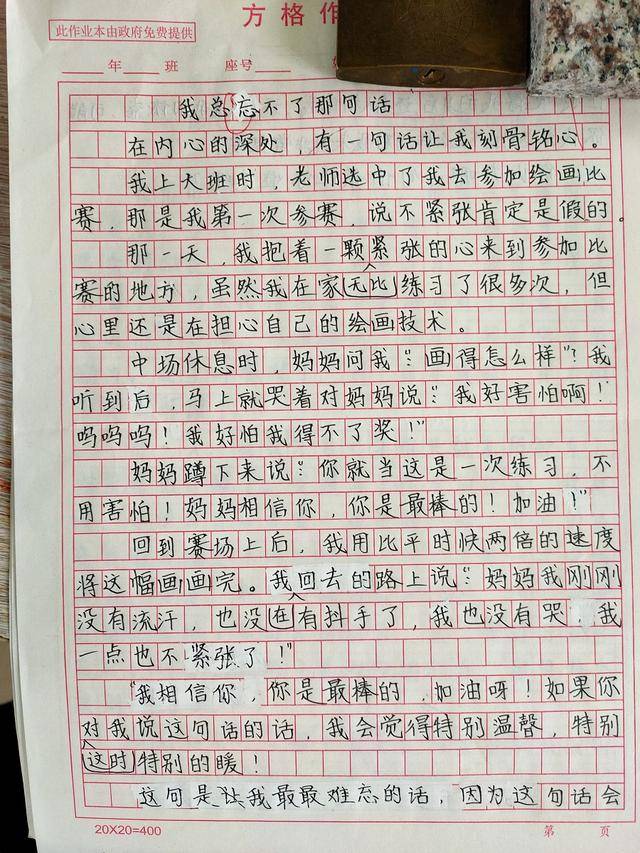 方格作
此作业本由政府免费提供
年 班 座号
我总忘不了那句话
在内心的深处,有一句话让我刻骨铭心。
我上大班时,老师选中了我去参加绘画比
赛,那是我第一次参赛,说不紧张肯定是假的。
那一天,我抱着一颗紧张的心来到参加比
赛的地方,虽然我在家无比练习了很多次,但
心里还是在担心自己的绘画技术。
中场休息时,妈妈问我:“画得怎么样”?我
听到后,马上就哭着对妈妈说:“我好害怕啊!
呜呜呜!我好怕我得不了奖!”
妈妈蹲下来说:“你就当这是一次练习,不
用害怕!妈妈相信你,你是最棒的!加油!”
回到赛场上后,我用比平时快两倍的速度
将这幅画画完。我回去的路上说:“妈妈我刚刚
没有流汗,也没在有抖手了,我也没有哭,我
一点也不紧张了!”
“我相信你,你是最棒的,加油呀!如果你
对我说这句话的话,我会觉得特别温馨,特别
这时特别的暖!
这句是让我最最难忘的话,因为这句话会
20X20=400
第 页